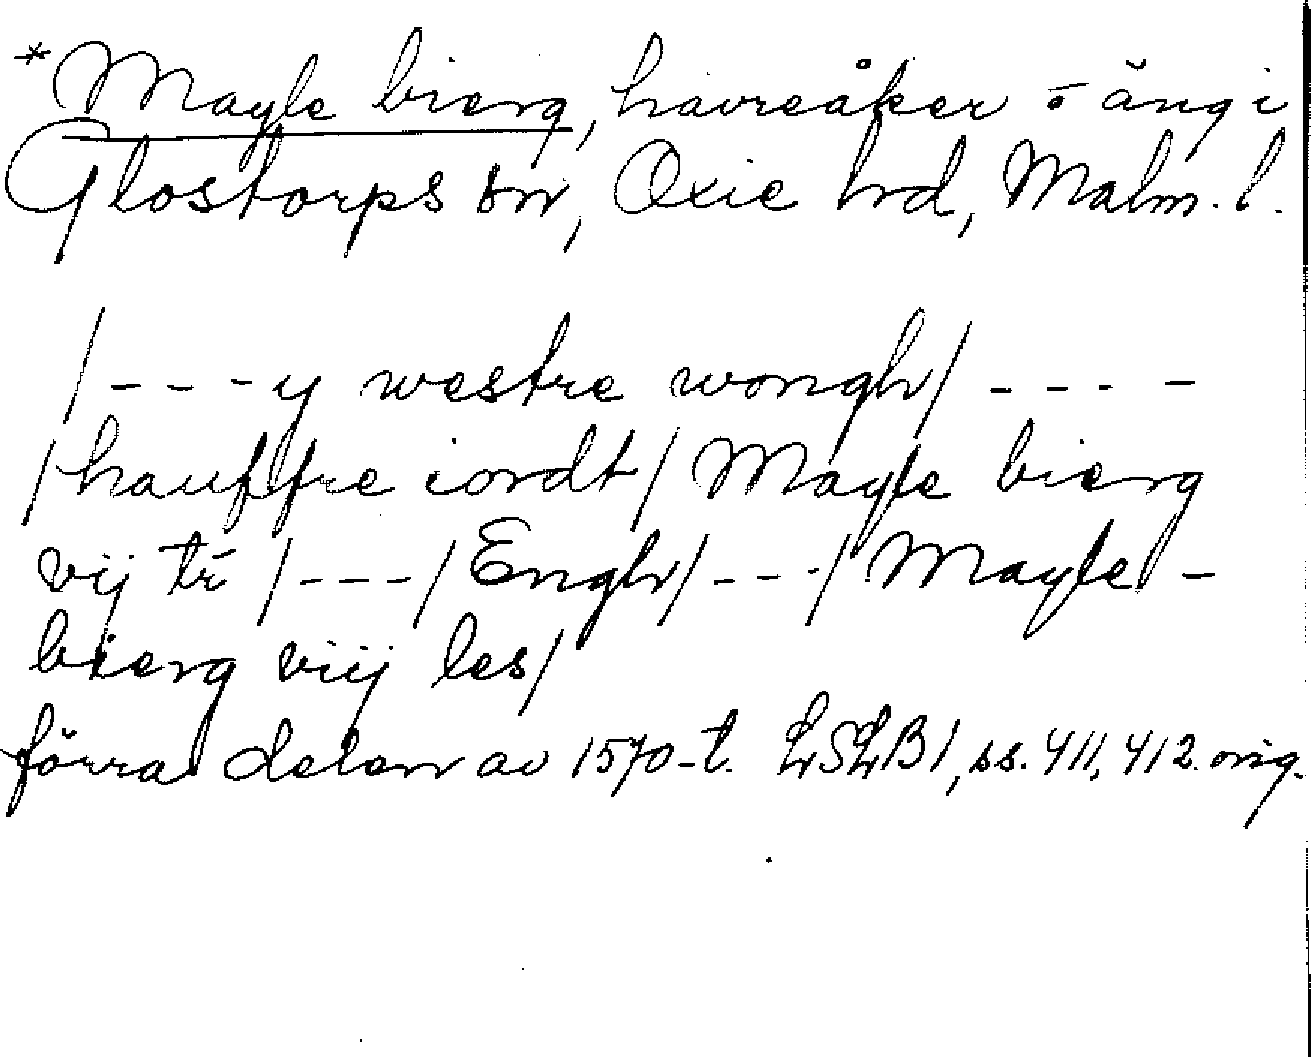 *Mayle bierg, havreåker o äng i
Glostorps sn, Oxie hd, Malm. l.
/---y westre wongh/----
/hauffre iordt/ Mayle bierg
vij tr /---/ Engh/---/ Mayle-
bierg viij les/
förra delen av 1570-t. LSLB1, ss. 411, 412. orig.